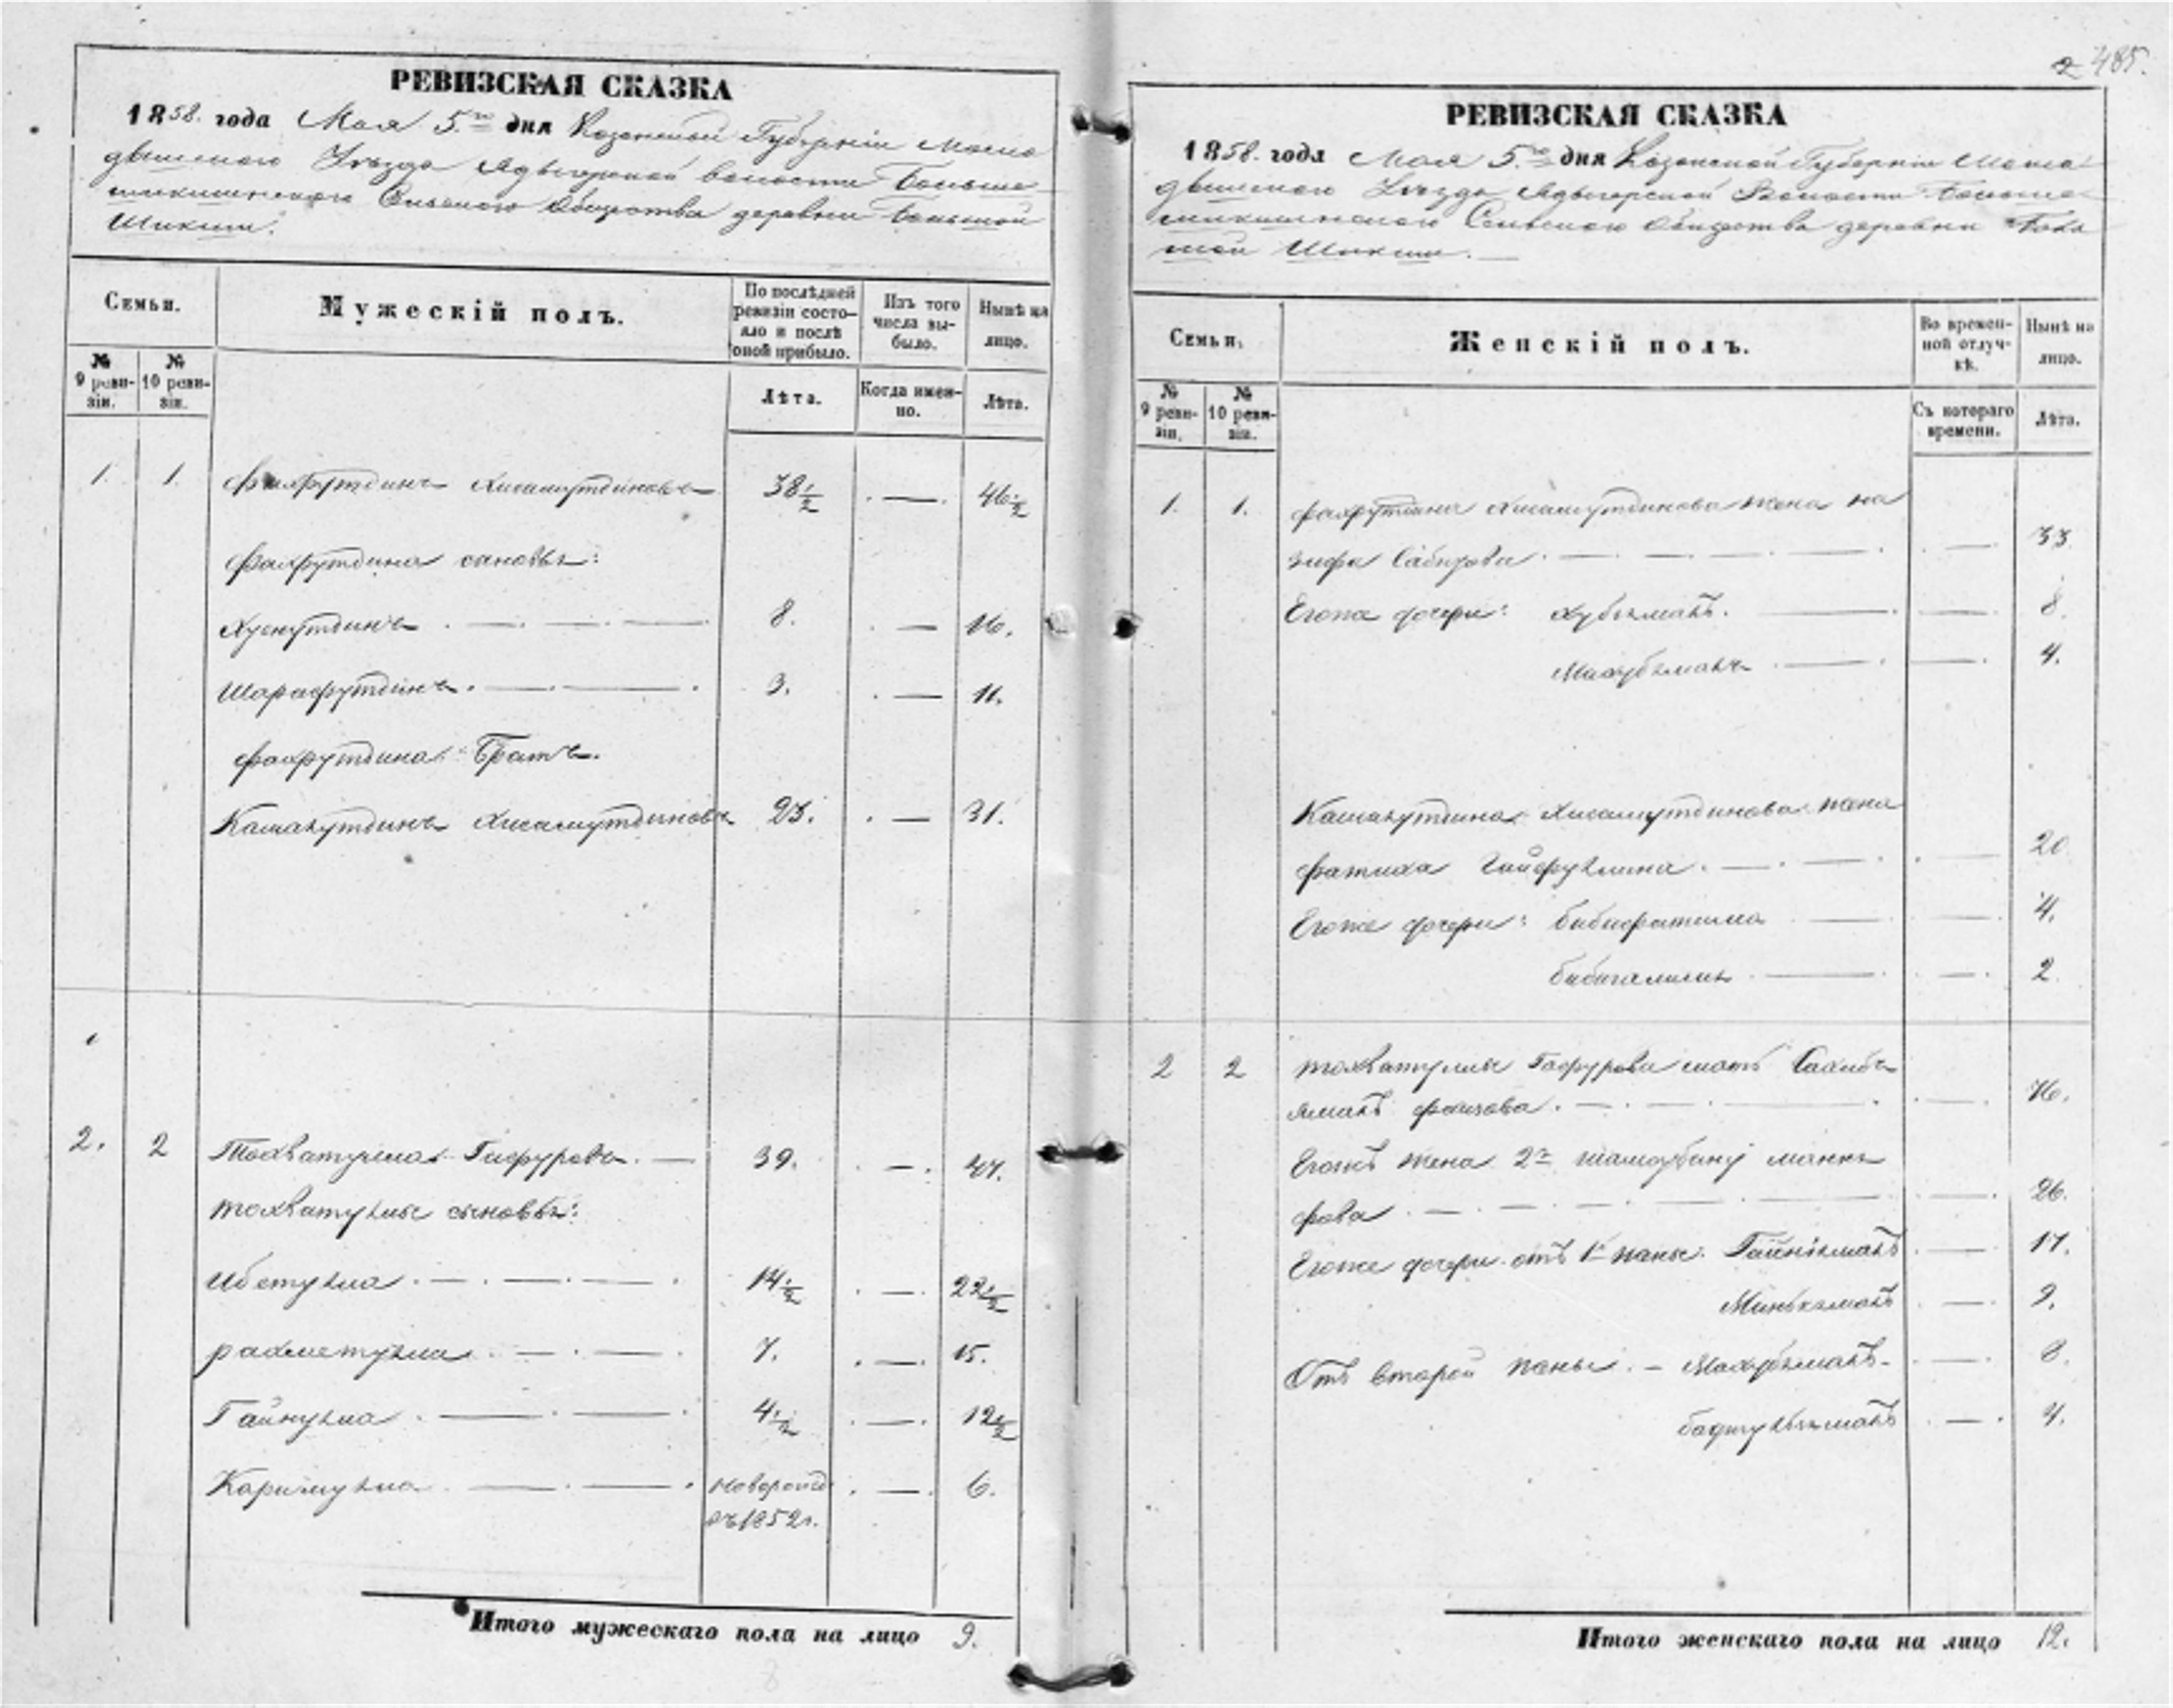 РЕВИЗСКАЯ СКАЗКА
1858. года Мая 5.го дня Казанской Губерніи Мама
дышского Уѣзда Адѣгерской волости Больше-
шикшинского Сельского Общества деревни Большой
Шикши.
Семьи.
Мужескій полъ.
По послѣдней ревизіи состо-
яло и послѣ
оной прибыло.
Изъ того
числа вы-
было.
Нынѣ на
лицо.
№
9 реви-
зіи.
№
10 реви-
зіи.
Лѣта.
Когда имен-
но.
Лѣта.
1. 1. Фахрутдинъ Хисамутдиновъ 38 1/2 . — . 46 1/2
Фахрутдина сыновья:
Хуснутдинъ . — . — . — 8. . — 16.
Шарафутдинъ . — . — . 3. . — 11.
Фахрутдина Братъ.
Камалутдинъ Хисамутдиновъ 23. . — 31.
2. 2 Тохватулла Гафуровъ. — 39. . — . 47.
Тохватуллы сыновья:
Ибетулла . — . — . — . 14 1/2 . — . 22 1/2
рахметулла . — . — . 7. . — . 15.
Гайнулла . — . — . 4 1/2 . — . 12 1/2
Каримулла . — . — . новорожд . — . 6.
въ 1852 г.
Итого мужескаго пола на лицо 9.
2 485.
РЕВИЗСКАЯ СКАЗКА
1858. года Мая 5.го дня Казанской Губерніи Мама
дышского Уѣзда Адѣгерской Волости Больше-
шикшинского Сельского Общества деревни Боль
шой Шикши. —
Семьи.
Женскій полъ.
Во времен-
ной отлуч-
кѣ.
Нынѣ на
лицо.
№
9 реви-
зіи.
№
10 реви-
зіи.
Съ котораго
времени.
Лѣта.
1. 1. Фахрутдина Хисамутдинова жена на
зифа Сабирова . — . — . — . . — . 33
Егоже дочери: Хубзямалъ. — . — . 8.
Махубзямалъ . — . — . 4.
Камалутдина Хисамутдинова жена
Фатиха Гайфуллина . — . — . . — 20
Егоже дочери: бибифатима — . — . 4.
бибигалима — . . — . 2
2 2 Тохватуллы Гафурова мать Сахибъ
ямалъ Фаизова . — . — . . — . 76.
Егожъ жена 2я
фова . — . — . — . — . 26.
Егоже дочери отъ 1й жены: Гайнизямалъ . — . 17.
Миньзямалъ . — . 9.
Отъ второй жены. — Махубзямалъ — . — . 8.
. — . 4.
Итого женскаго пола на лицо 12.